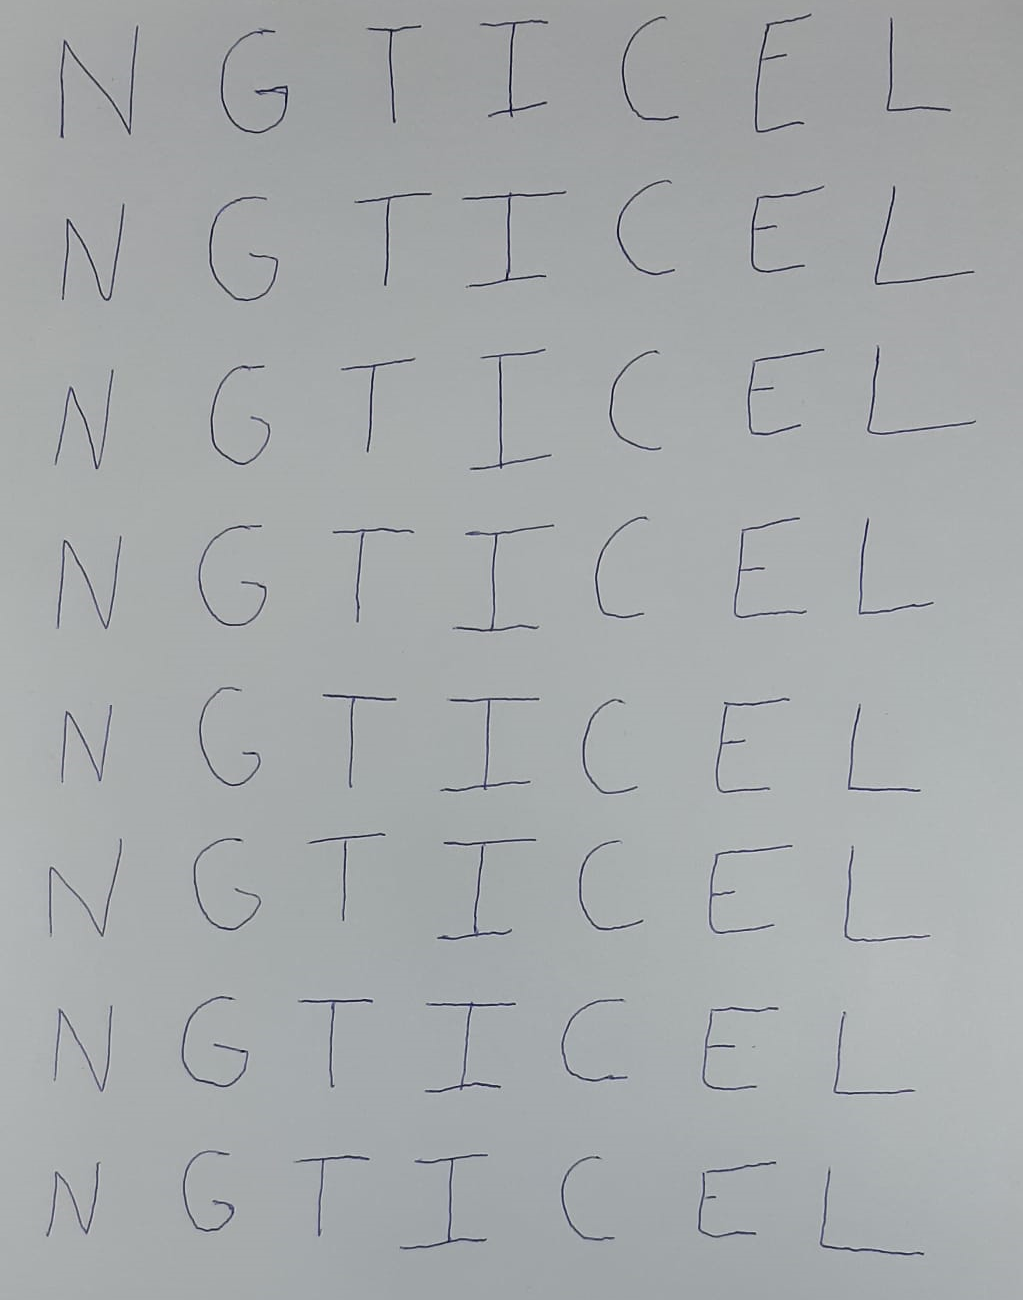 N G T I C E L
N G T I C E L
N G T I C E L
N G T I C E L
N G T I C E L
N G T I C E L
N G T I C E L
N G T I C E L